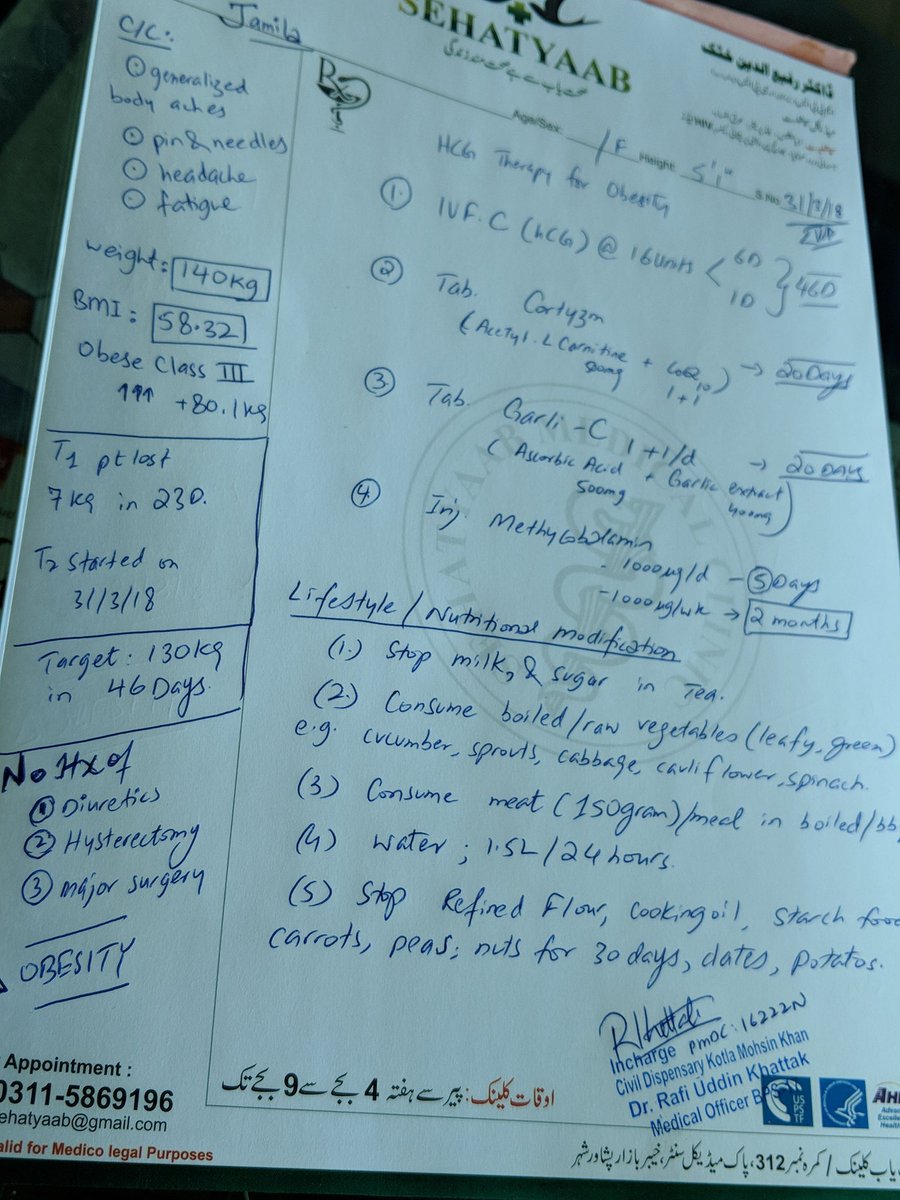 SEHATYAAB
ڈاکٹر رفیع الدین خٹک
Jamila
Age/Sex: /F Height 5'1" S.No. 31/3/18
C/C:
① generalized
body aches
⊙ pin & needles
⊙ headache
⊙ fatigue
weight: 140kg
BMI: 58.32
Obese Class III
↑↑↑ +80.1kg
T1 pt lost
7kg in 23D.
T2 started on
31/3/18
Target: 130kg
in 46 Days.
No Hx of
① Diuretics
② Hysterectomy
③ major surgery
OBESITY
Rx
HCG Therapy for Obesity
① IVF.C (hCG) @ 16 units < 6D 1D } 46D
② Tab. Cortyzm
(Acetyl.L Carnitine + CoQ10) → 20 Days
500mg 1+1
③ Tab. Garli-C 1+1/d → 20 Days
(Ascorbic Acid + Garlic extract)
500mg 400mg
④ Inj. Methylcobalamin
- 1000µg/d - ⑤ Days
- 1000µg/wk → 2 months
Lifestyle/Nutritional modification
(1.) Stop milk, & sugar in Tea.
(2.) Consume boiled/raw vegetables (leafy, green)
e.g. cucumber, sprouts, cabbage, cauliflower, spinach.
(3) Consume meat (150gram)/meal in boiled/bb
(4) water; 1.5L/24 hours.
(5) Stop Refined Flour, cooking oil, starch food
carrots, peas; nuts for 30 days, dates, potatos.
SEHATYAAB MEDICAL CLINIC
PMDC: 16222N
Incharge
Civil Dispensary Kotla Mohsin Khan
Dr. Rafi Uddin Khattak
Medical Officer
Appointment :
0311-5869196
ehatyaab@gmail.com
alid for Medico legal Purposes
اوقات کلینک: پیر سے ہفتہ 4 بجے سے 9 بجے تک
US
PS
TF
AHR
یاب کلینک / کمرہ نمبر 312، پاک میڈیکل سنٹر، خیبر بازار پشاور شہر